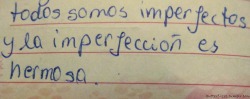 todos somos imperfectos
y la imperfección es
hermosa.